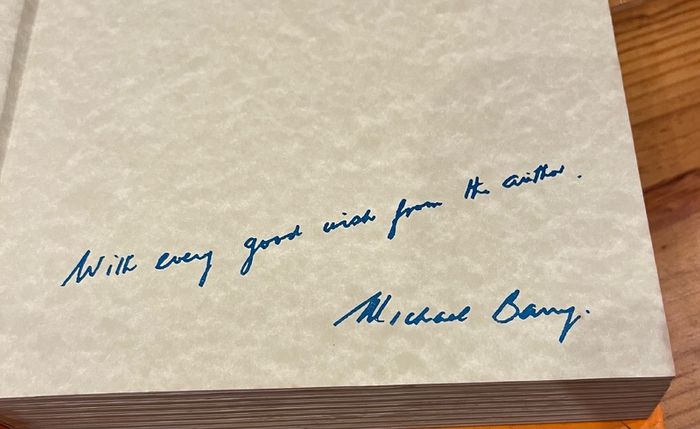 With every good wish from the author.
Michael Barry.